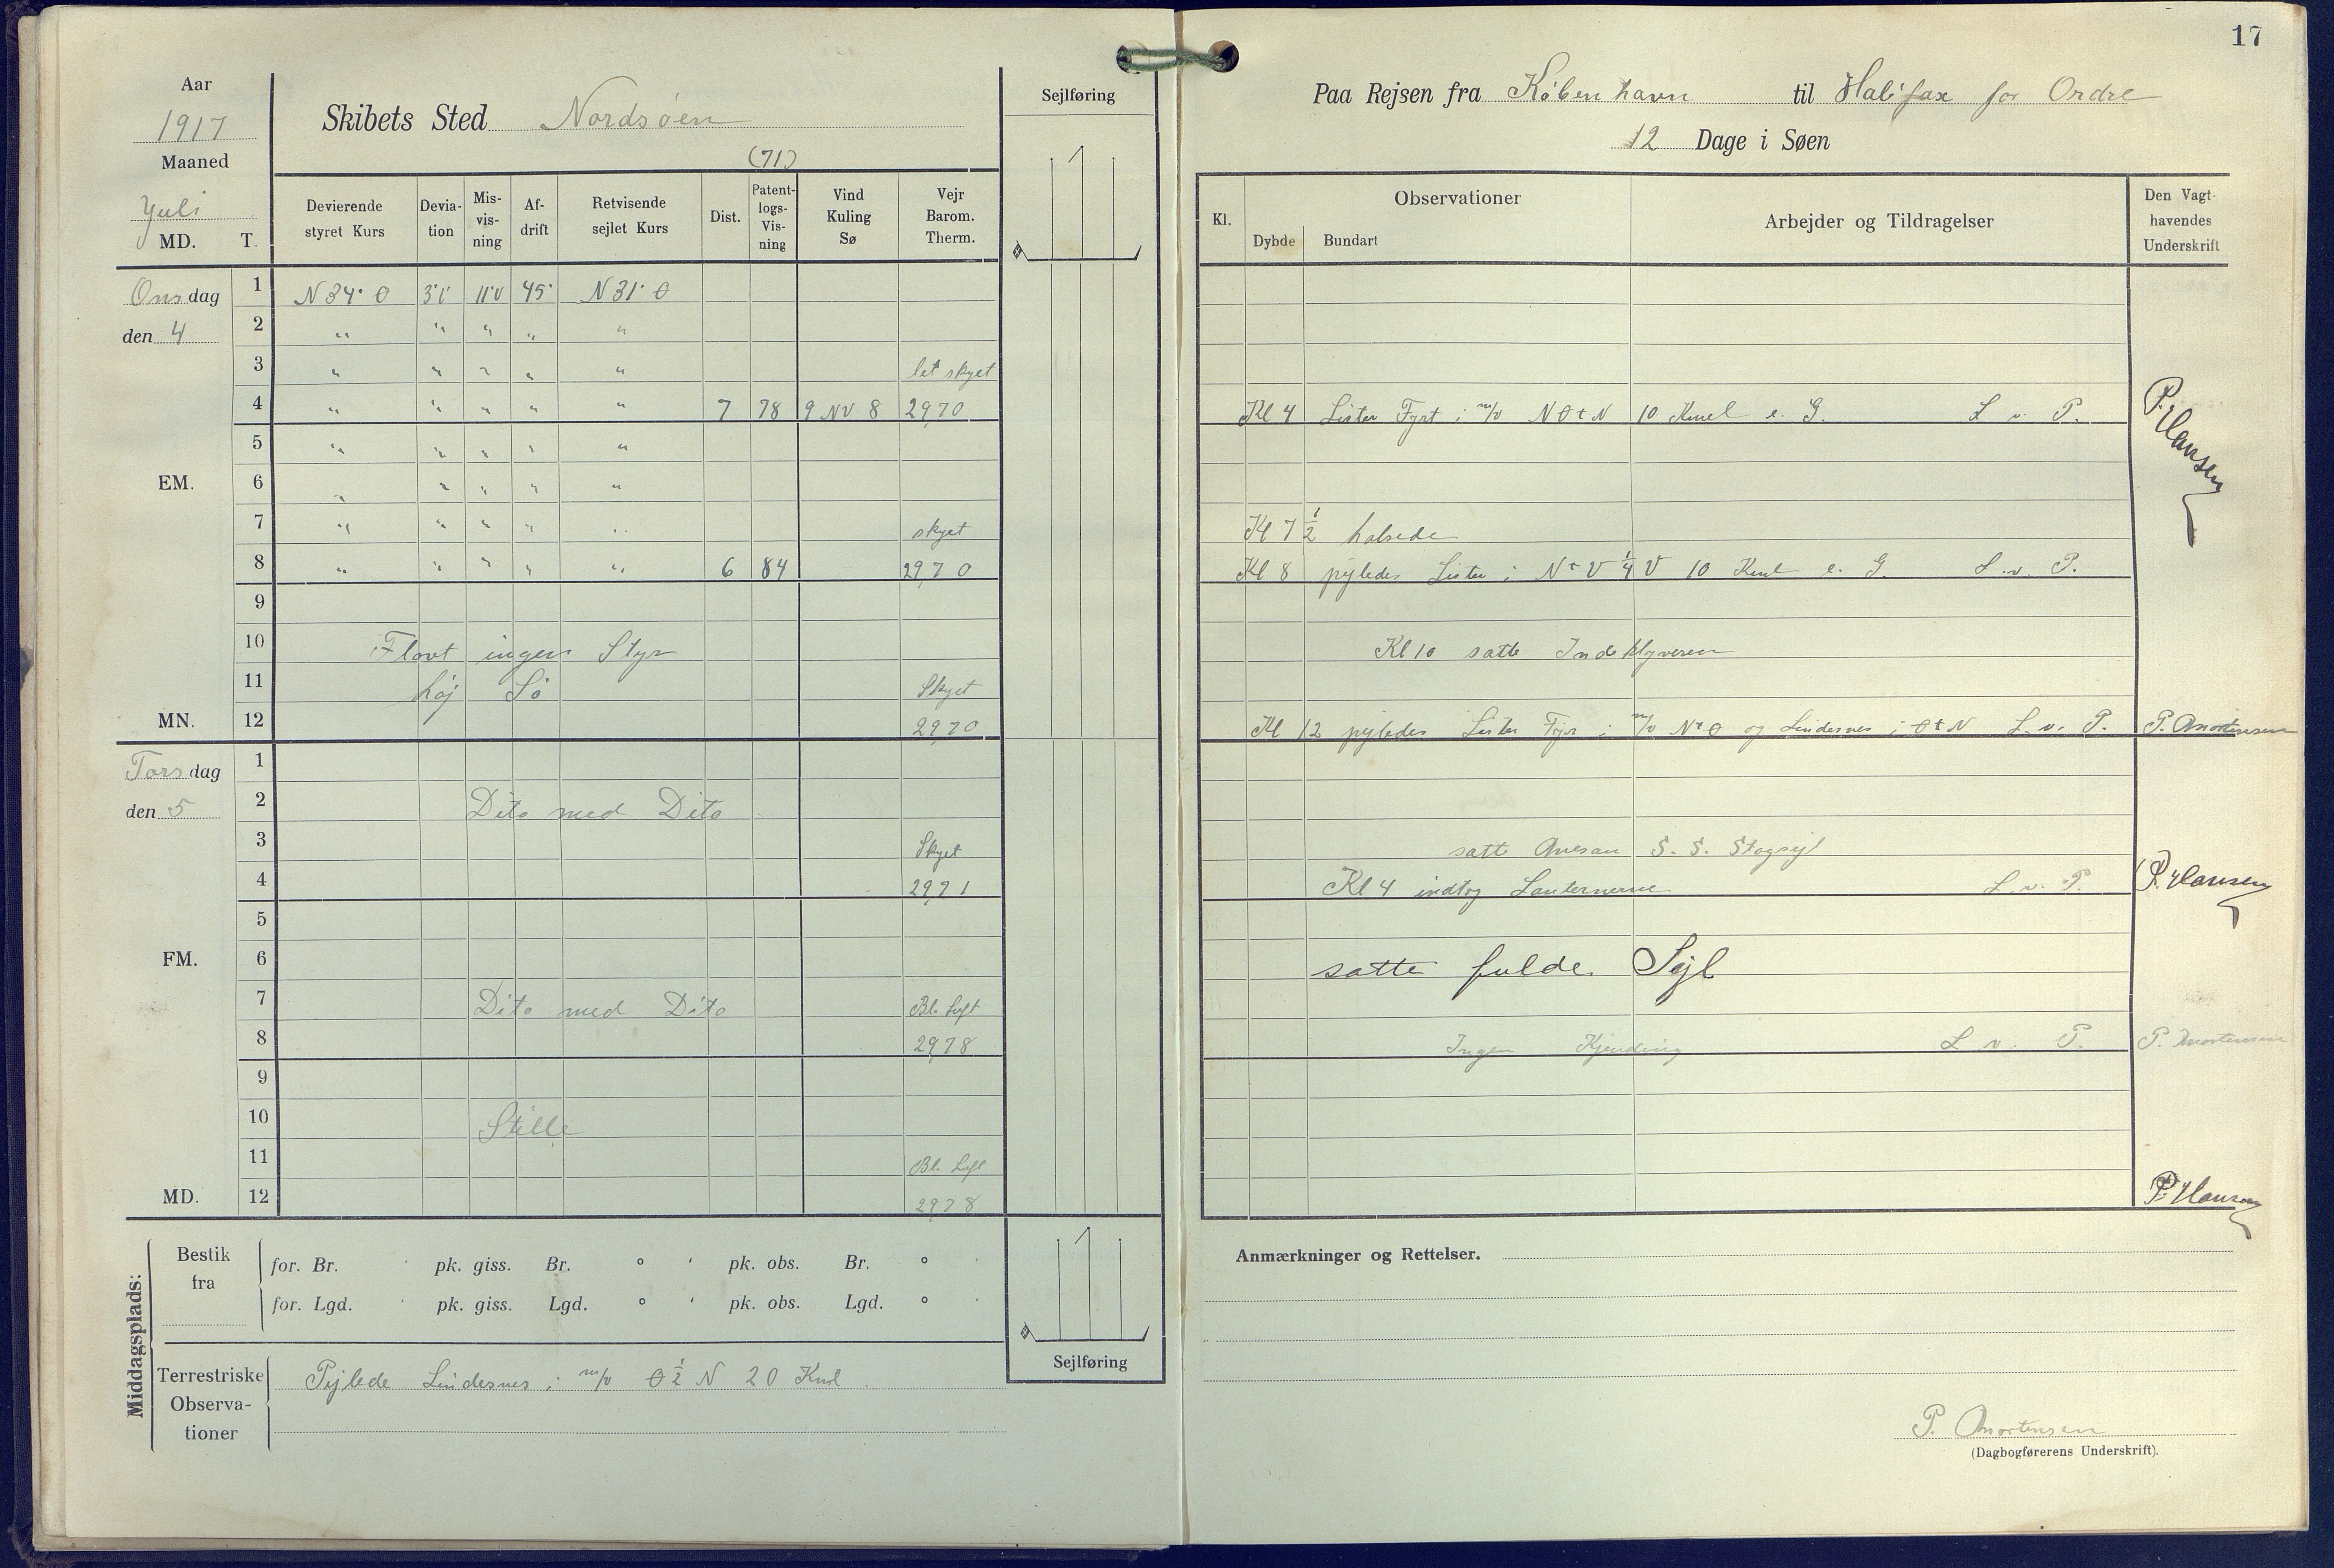 17
Aar
1917
Maaned
Juli
MD. T.
Skibets Sted Nordsøen
(71)
Sejlføring
Paa Rejsen fra København til Halifax for Ordre
12 Dage i Søen
Devierende styret Kurs
Devia- tion
Mis- vis- ning
Af- drift
Retvisende sejlet Kurs
Dist.
Patent- logs- Vis- ning
Vind Kuling Sø
Vejr Barom. Therm.
Kl.
Observationer
Dybde Bundart
Arbejder og Tildragelser
Den Vagt- havendes Underskrift
Onsdag 1 N 34° O 45° N 31° O
den 4 2 " " " " "
3 " " " " " let skyet
4 " " " " " 7 78 9 NV 8 29,70 Kl 4 Lister Fyrt i m/v NOtN 10 Kml e. G. L v. P. P. Hansen
5 " " " " "
EM. 6 " " " " "
7 " " " " " skyet Kl 7 1/2 halsede
8 " " " " " 6 84 29,70 Kl 8 pejledes Lister i NtV 1/4 V 10 Kml e. G. L. v. P.
9
10 Flovt ingen Styr Kl 10 satte Indeklyveren
11 høj Sø Skyet
MN. 12 29,70 Kl 12 pejledes Lister Fyr i m/v NtO og Lindesnes i OtN L. v. P. P. Mortensen
Torsdag 1
den 5 2 Dito med Dito
3 Skyet satte Mesan S. S. Stagsejl
4 29,71 Kl 4 indtog Lanternerne L. v. P. P. Hansen
5
FM. 6 satte fulde Sejl
7 Dito med Dito Bl. Luft
8 29,78 Ingen Kjending L v. P. P. Mortensen
9
10 Stille
11 Bl. Luft
MD. 12 29,78 P. Hansen
Middagsplads:
Bestik fra
for. Br. ' pk. giss. Br. ° ' pk. obs. Br. ° '
for. Lgd. ' pk. giss. Lgd. ° ' pk. obs. Lgd. ° '
Sejlføring
Terrestriske Observa- tioner
Pejlede Lindesnes i m/v O 1/2 N 20 Kml
Anmærkninger og Rettelser.
P. Mortensen
(Dagbogførerens Underskrift).